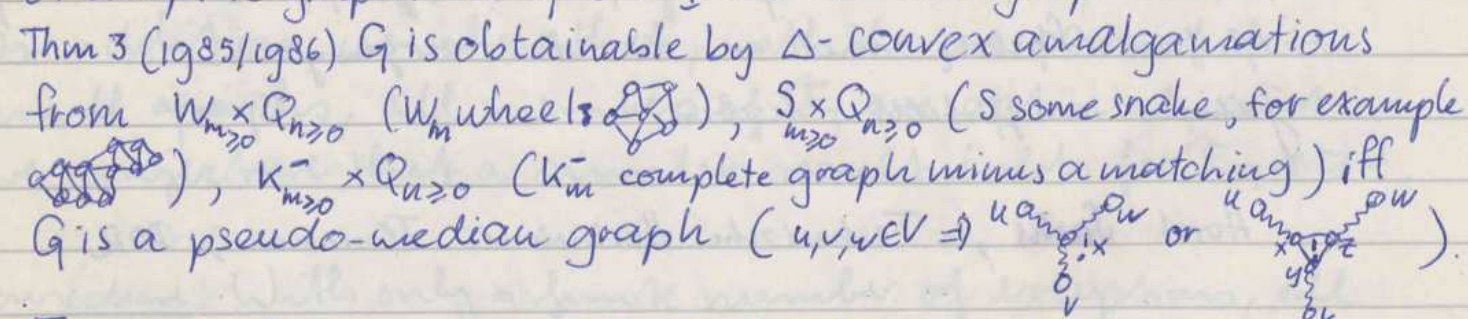 Thm 3 (1985/1986) G is obtainable by Δ-convex amalgamations
from W_{m≥0} × Q_{n≥0} (W_m wheels), S_{m≥0} × Q_{n≥0} (S some snake, for example
), K^-_{m≥0} × Q_{n≥0} (K^-_m complete graph minus a matching) iff
G is a pseudo-median graph (u,v,w∈V ⇒ u w !x v or u w x ! z y v).